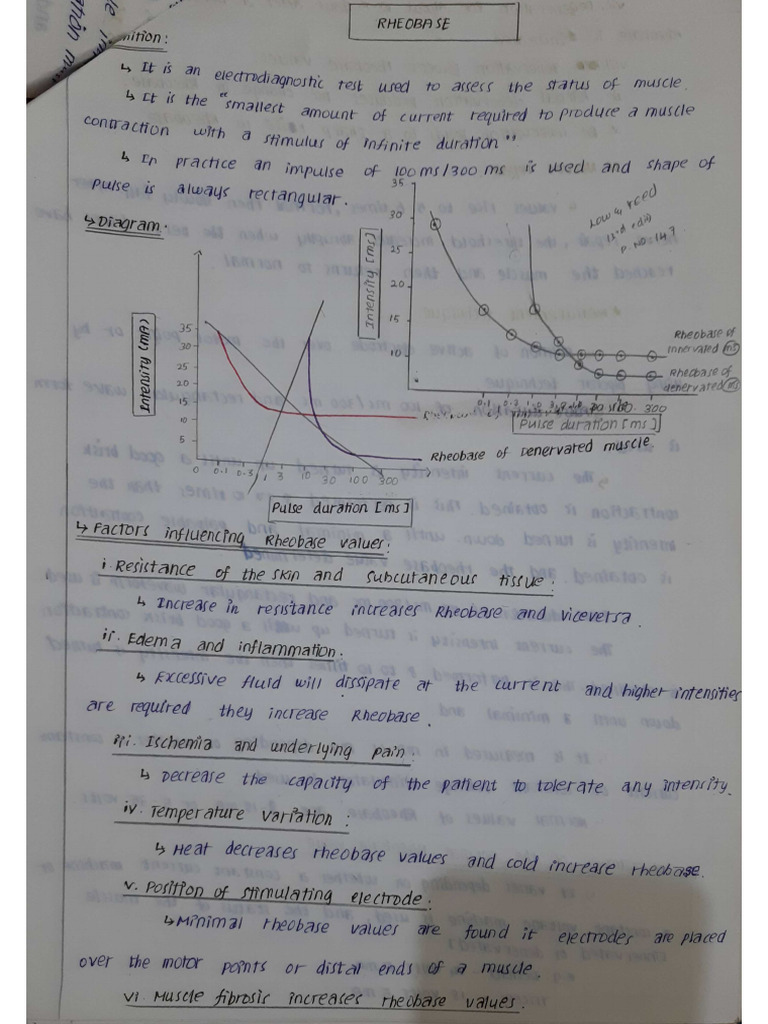 RHEOBASE
nition:
↳ It is an electrodiagnostic test used to assess the status of muscle.
↳ It is the "smallest amount of current required to produce a muscle
contraction with a stimulus of infinite duration"
↳ In practice an impulse of 100ms/300 ms is used and shape of
pulse is always rectangular.
↳ Diagram.
Intensity [ms]
35
30
25
20
15
10
Low & reed
P. NO: 147
Rheobase of
innervated ms
Rheobase of
denervated ms
0.1 0.2 1.0 300
Pulse duration [ms]
Intensity (mA)
35
30
25
20
15
10
5
0 0.1 0.3 1 3 10 30 100 300
Rheobase of Denervated muscle
Pulse duration [ms]
↳ Factors influencing Rheobase values:
i. Resistance of the skin and subcutaneous tissue:
↳ Increase in resistance increases Rheobase and viceversa.
ii. Edema and inflammation.
↳ Excessive fluid will dissipate at the current and higher intensities
are required they increase Rheobase.
iii. Ischemia and underlying pain:
↳ Decrease the capacity of the patient to tolerate any intensity.
iv. Temperature variation:
↳ Heat decreases rheobase values and cold increase rheobase.
v. Position of stimulating electrode:
↳ Minimal rheobase values are found it electrodes are placed
over the motor points or distal ends of a muscle.
vi. Muscle fibrosis increases rheobase values.